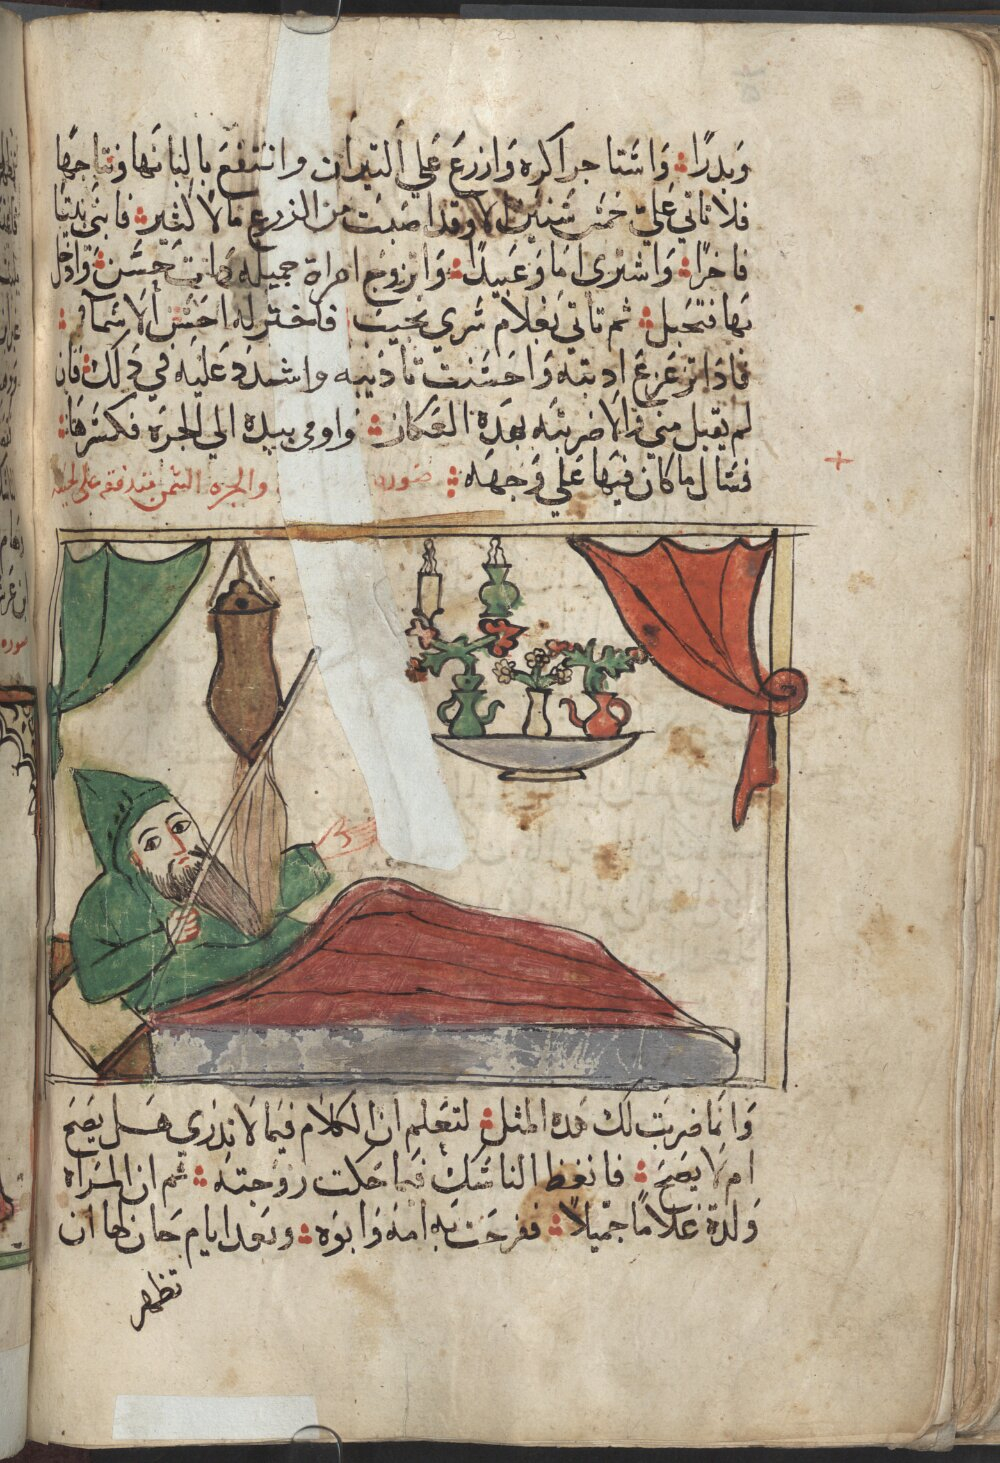 وَبدرًا ⁘ وَاشتاجر اكره وَازرعَ عَلي التيران وانتفعَ بالبانها ونتاجهَا
فلا تاتي عَليّ خمسَ سَنين الا وقد اصَبت من الزرع مالا كثير ⁘ فابنى بيتا
فاخرًا ⁘ وَاشترى اما وَعَبيدًا ⁘ وَاتزوج امراة جميله دات حسَن ⁘ وَادخل
بَها فتحبل ⁘ ثم تاتي بَغلام سَري نجيبَ فاختر له احسَن الاسَمآ ⁘
فادَا ترَعرَعَ ادبته وَاحسَنت تاديبه واشددَ عَليَه في دَلك ⁘ فان
لم يقبل مني والا ضربتَه بهدَه العَكاز ⁘ واومى بيده الي الجرَه فكسَّرهَا ⁘
فسَال ما كان فيهَا عَلي وَجهَه ⁘ صَورة والجره السَمن يتدفق على لحيته
وَانمَا ضربتَ لك هَده المثل ⁘ لتعَلم ان الكلام فيما لا ندَري هَل يصَحَ
ام لا يصَحَ ⁘ فاتعَظ الناسَك فيما حَكت زوَجتهَ ⁘ ثم ان المَراه
وَلدة غلامًا جميلاً ⁘ ففرحَت بَه امهَ وَابوَه ⁘ وبَعَد ايام حَان لها ان
تظهر